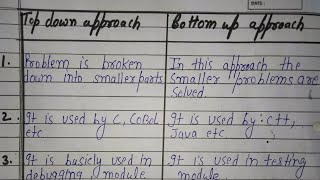 DATE:
Top down approach
Bottom up approach
1.
Problem is broken
down into smaller parts
In this approach the
smaller problems are
solved.
2.
It is used by C, COBOL
etc
It is used by : C++,
Java etc
3.
It is basicly used in
debugging, module
It is used in testing
module